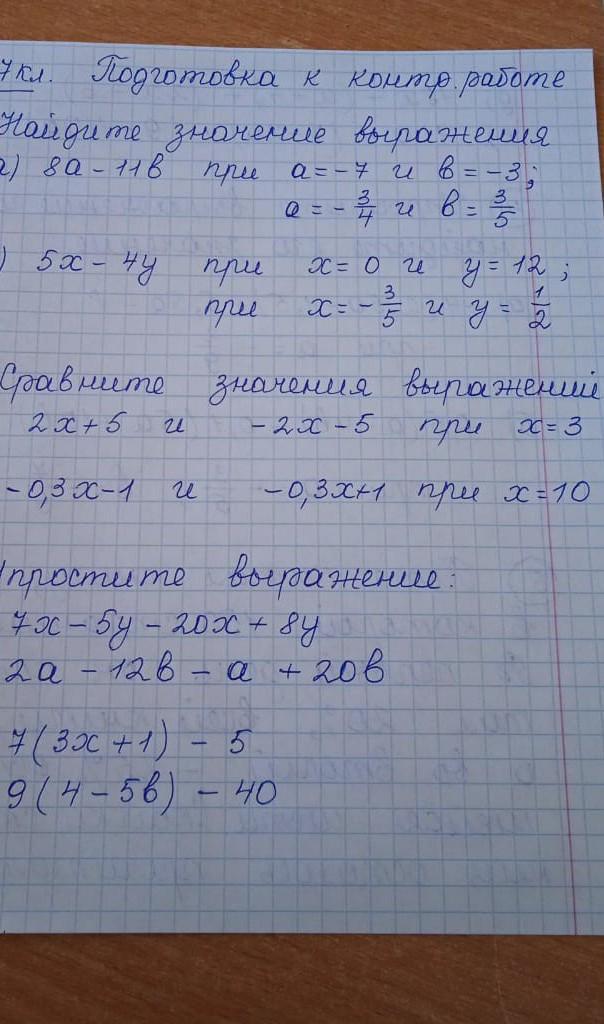 7 кл. Подготовка к контр. работе
Найдите значение выражения
а) 8а - 11в при а = -7 и в = -3;
а = -3/4 и в = 3/5
) 5х - 4у при х = 0 и у = 12;
при х = -3/5 и у = 1/2
Сравните значения выражений
2х + 5 и -2х - 5 при х = 3
-0,3х - 1 и -0,3х + 1 при х = 10
Упростите выражение:
7х - 5у - 20х + 8у
2а - 12в - а + 20в
7(3х + 1) - 5
9(4 - 5в) - 40